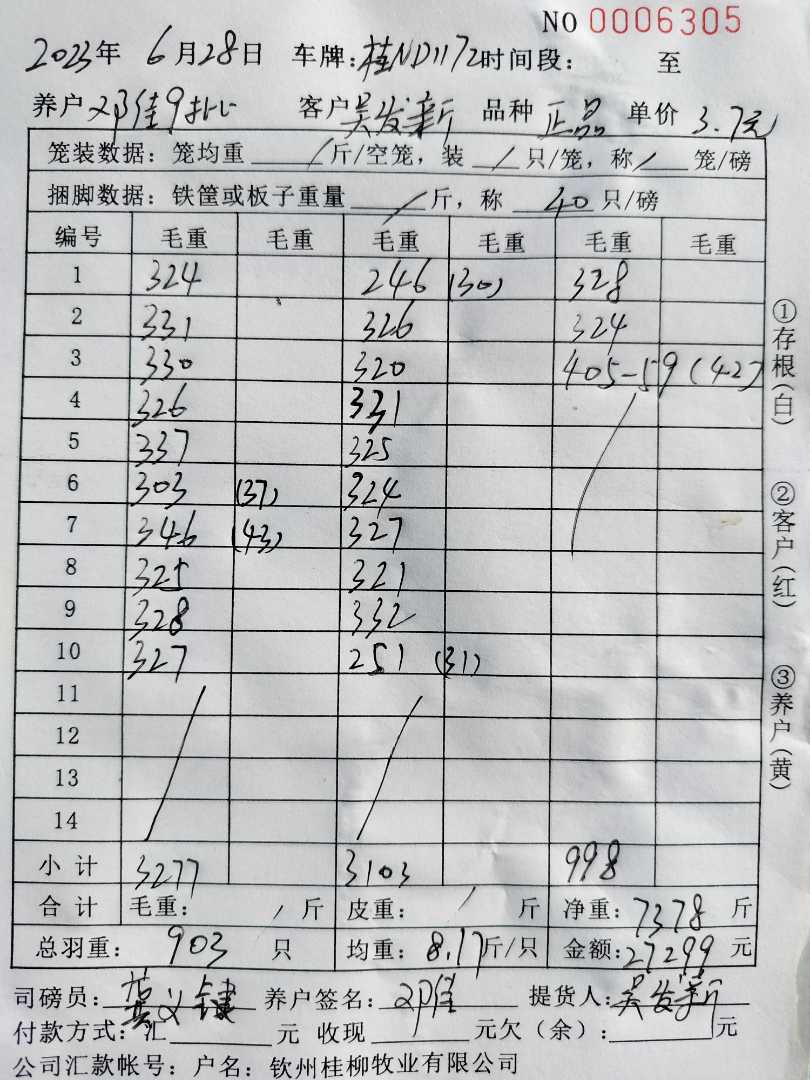 NO 0006305
2023年 6月28日 车牌:桂ND1172 时间段: 至
养户 邓佳 客户 吴发新 品种 正品 单价 3.7元
笼装数据:笼均重 / 斤/空笼,装 / 只/笼,称 / 笼/磅
捆脚数据:铁筐或板子重量 / 斤,称 40 只/磅
编号 毛重 毛重 毛重 毛重 毛重 毛重
1 324 246 (30) 328
2 331 326 324
3 330 320 405-59 (42)
4 326 331
5 337 325
6 303 (37) 324
7 346 (43) 327
8 325 321
9 328 332
10 327 251 (31)
11
12
13
14
小计 3277 3103 998
合计 毛重: / 斤 皮重: / 斤 净重:7378 斤
总羽重: 903 只 均重: 8.17斤/只 金额:27299 元
司磅员: 养户签名: 邓佳 提货人:吴发新
付款方式:汇 元 收现 元欠(余): 元
公司汇款帐号:户名:钦州桂柳牧业有限公司
①存根(白)
②客户(红)
③养户(黄)